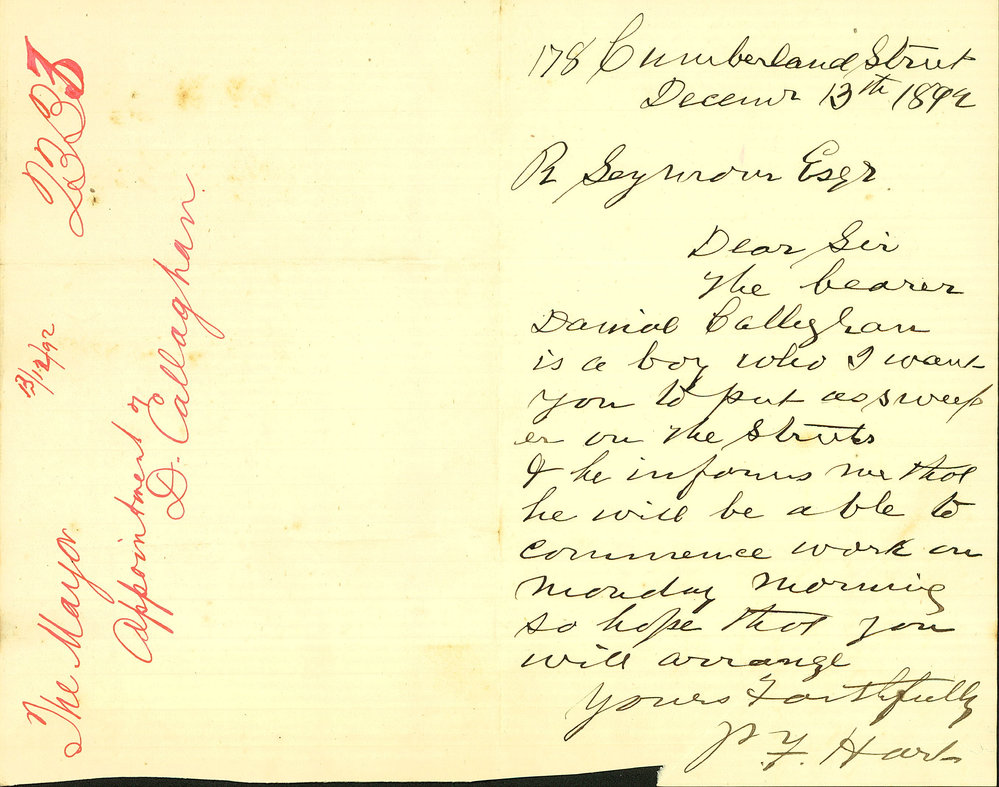 The Mayor
13/12/92
2333
Appointment of
D. Callaghan
178 Cumberland Street
Decemr 13th 1892
R Seymour Esqr
Dear Sir
The bearer
Daniel Calleghan
is a boy who I want
you to put as sweep
er on the Streets
& he informs me that
he will be able to
commence work on
Monday morning
so hope that you
will arrange
Yours Faithfully
Hart